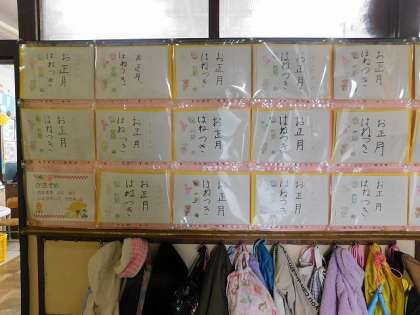 お正月
はねつき
お正月
はねつき
お正月
はねつき
お正月
はねつき
お正月
はねつき
お正月
はねつき
お正月
はねつき
お正月
はねつき
お正月
はねつき
お正月
はねつき
かきぞめ
お正月
はねつき
お正月
はねつき
お正月
はねつき
お正月
はねつき